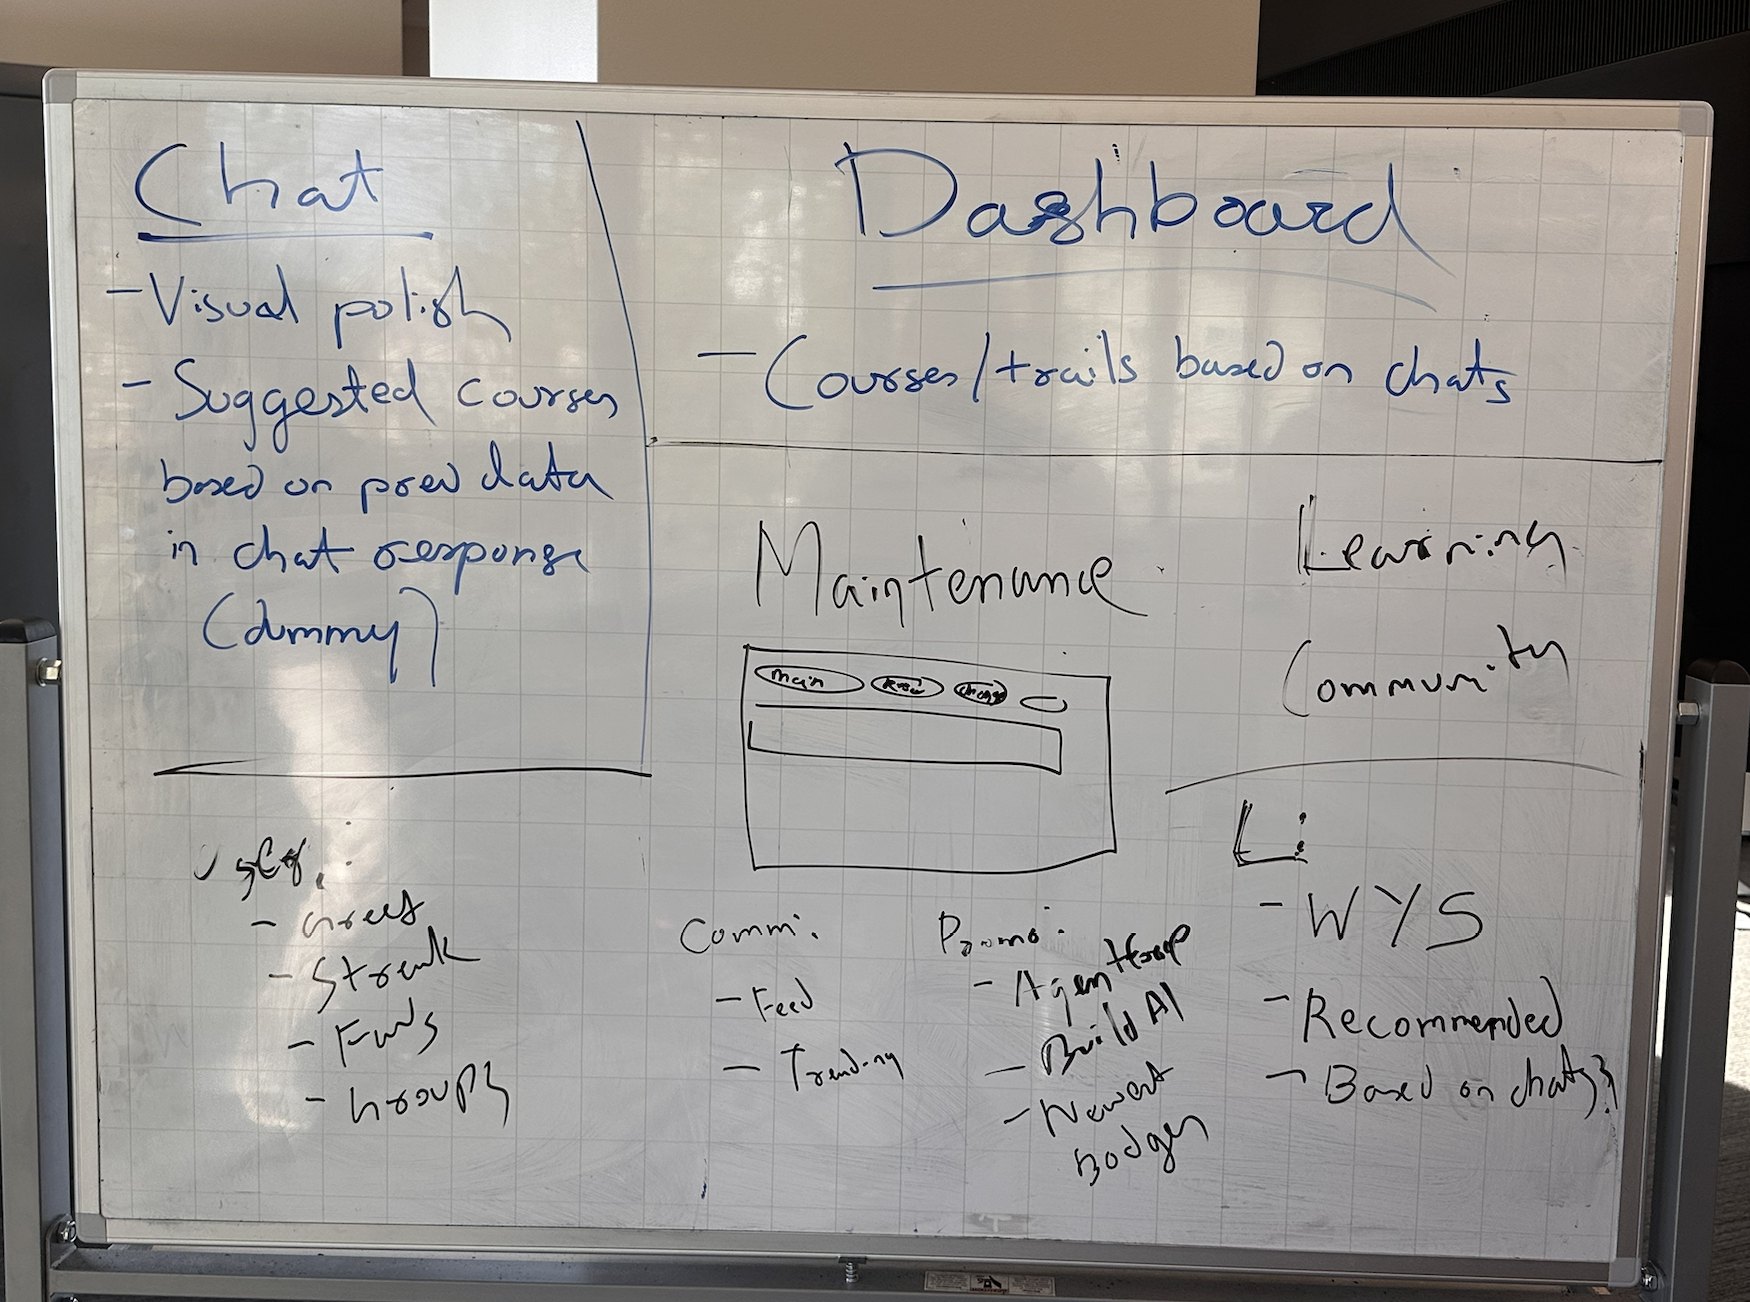 Chat
- Visual polish
- Suggested courses
based on prev data
in chat response
(dummy)
Dashboard
- Courses/trails based on chats
Maintenance
main
Learning
Community
User:
- Greet
- Streak
- Groups
Comm:
- Feed
- Trending
Promo:
- Agentforce
- Build AI
- Newest
Badges
L:
- WYS
- Recommended
- Based on chats?